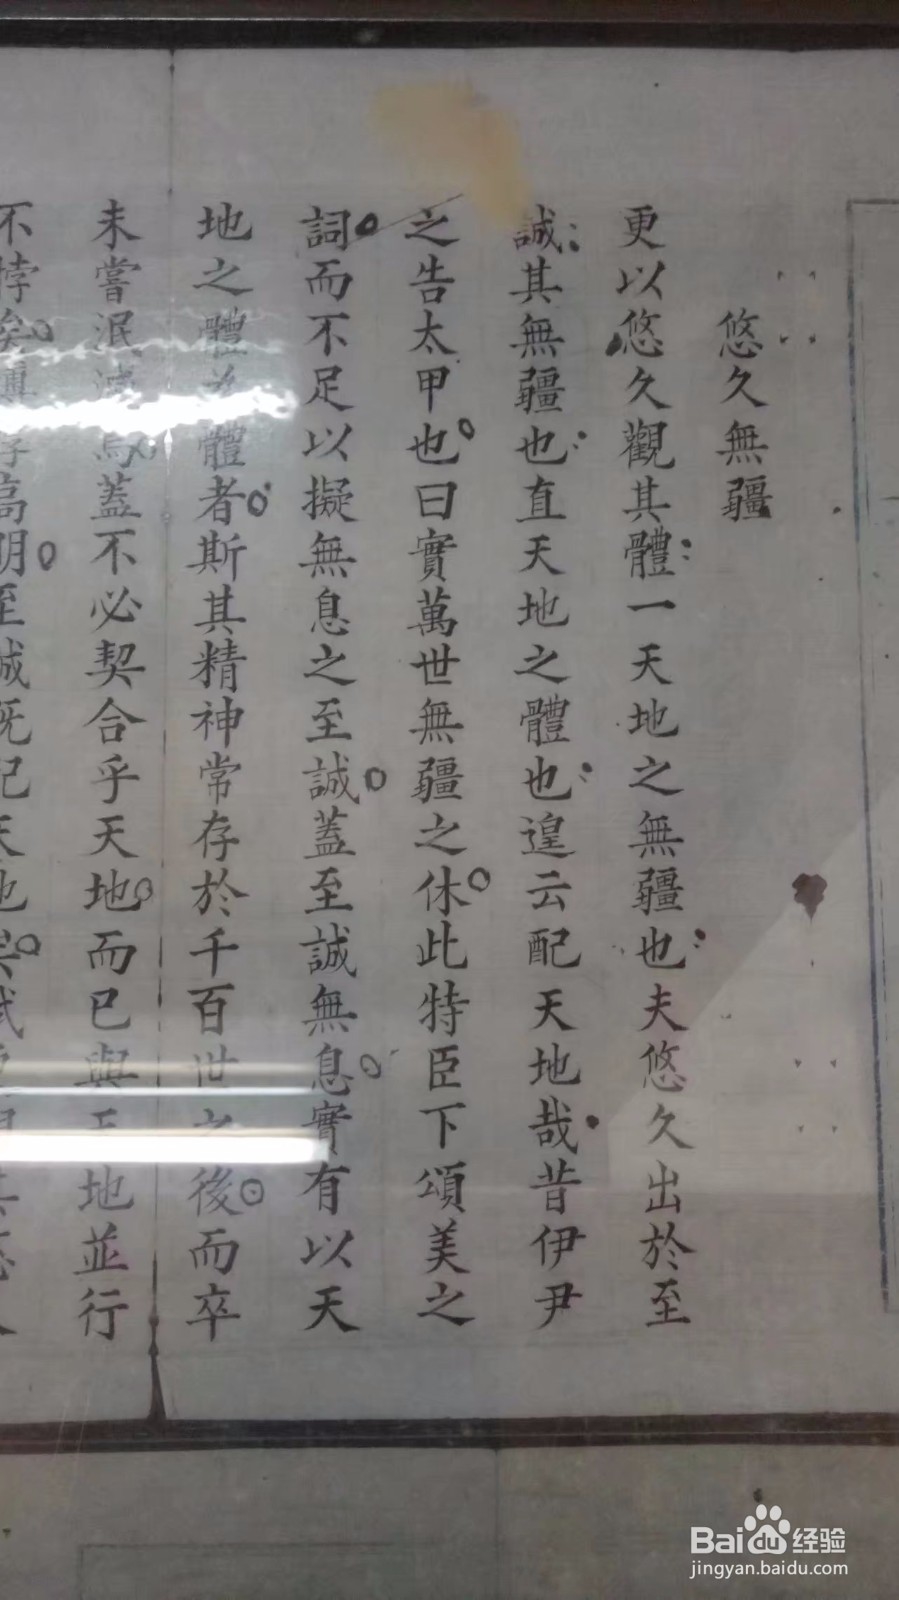 悠久無疆
更以悠久觀其體一天地之無疆也夫悠久出於至
誠其無疆也直天地之體也遑云配天地哉昔伊尹
之告太甲也曰實萬世無疆之休此特臣下頌美之
詞而不足以擬無息之至誠蓋至誠無息實有以天
地之體為體者斯其精神常存於千百世之後而卒
未嘗泯滅焉蓋不必契合乎天地而已與天地並行
不悖矣
高明至誠既配天地
Baidu经验
jingyan.baidu.com